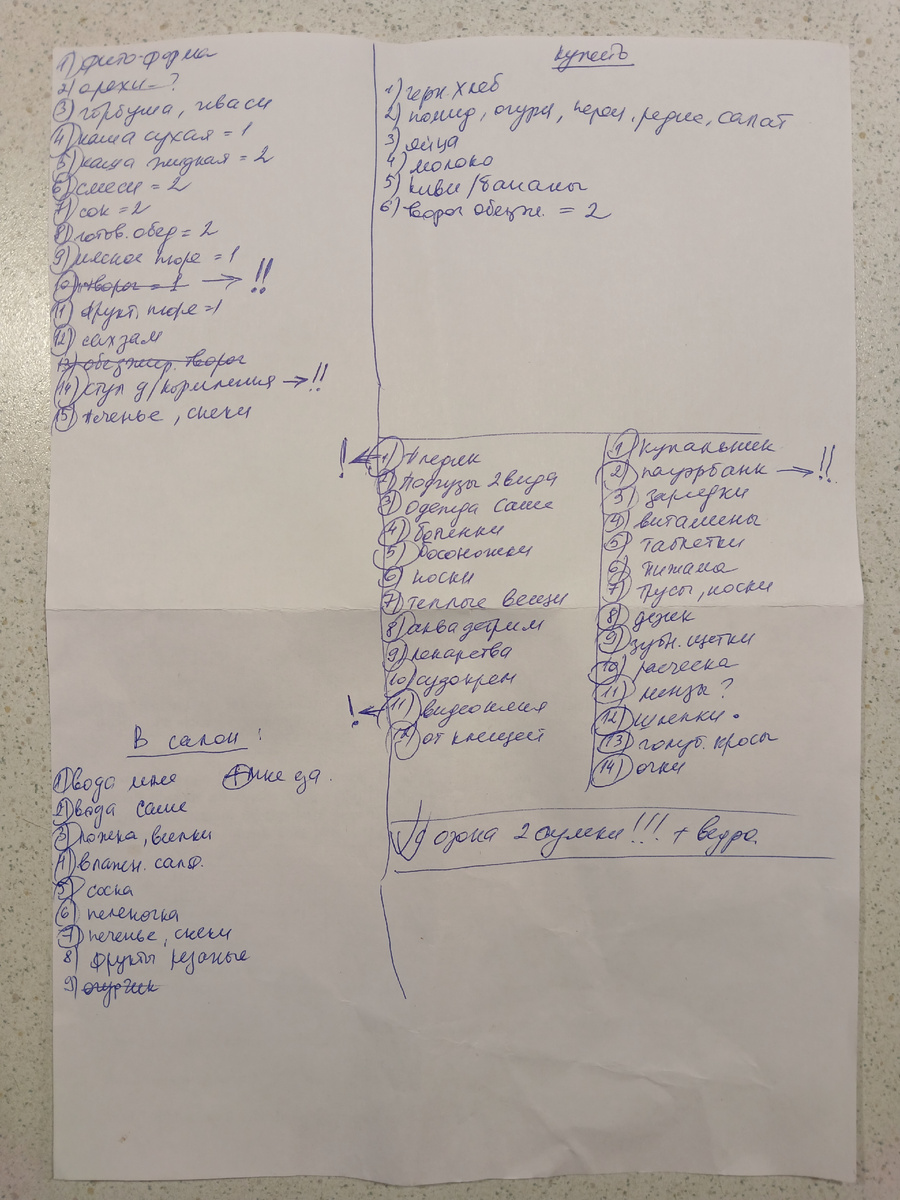 1) фито-форма
2) орехи = ?
3) горбуша, иваси
4) каша сухая = 1
5) каша жидкая = 2
6) смеси = 2
7) сок = 2
8) готов. обед = 2
9) мясное пюре = 1
10) творог = 1 → !!
11) фрукт. пюре = 1
12) сахзам
13) обезжир. творог
14) стул д/кормления → !!
15) печенье, снеки
Купить
1) черн. хлеб
2) помид, огурц, перец, редис, салат
3) яйца
4) молоко
5) киви / бананы
6) творог обезж. = 2
! ← 1) пледик
2) Подгузы 2 вида
3) Одежда Саше
4) ботинки
5) босоножки
6) носки
7) теплые вещи
8) аквадетрим
9) лекарства
10) судокрем
! ← 11) видеоняня
12) от клещей
1) купальник
2) пауэрбанк → !!
3) зарядки
4) витамины
5) таблетки
6) пижама
7) Трусы, носки
8) дезик
9) зубн. щетки
10) расческа
11) линзы?
12) шлепки.
13) голуб. кросы
14) очки
√ 4 озона 2 сумки!!! + ведра
В салон:
1) вода мне + мне еда.
2) вода Саше
3) ложка, вилки
4) влажн. салф.
5) соска
6) пеленочка
7) печенье, снеки
8) фрукты резаные
9) огурчик